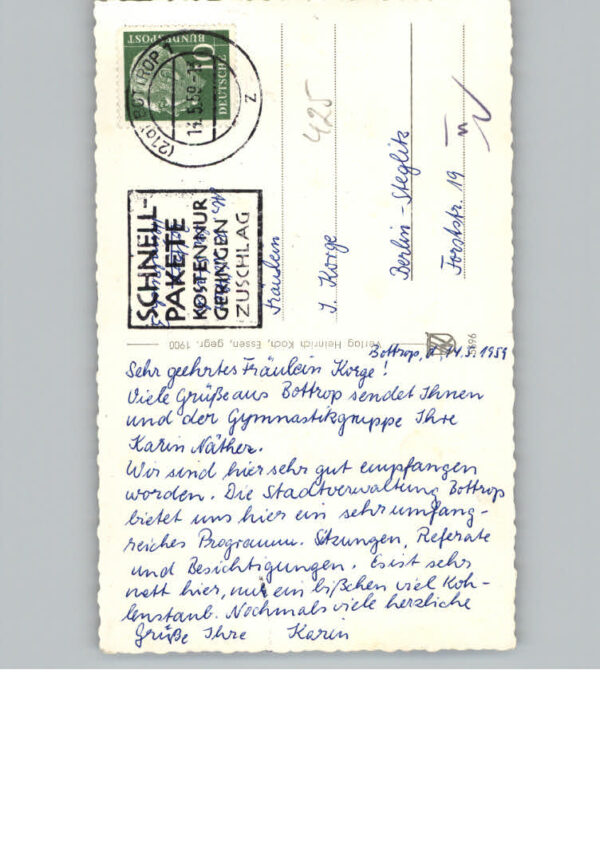 DEUTSCHE
BUNDESPOST
10
(21a) BOTTROP 1
14.5.59
z
SCHNELL-
PAKETE
KOSTEN NUR
GERINGEN
ZUSCHLAG
425
Fräulein
J. Korge
Berlin-Steglitz
Forststr. 19
Verlag Heinrich Koch, Essen, gegr. 1900
Bottrop, d. 14.5.1959
Sehr geehrtes Fräulein Korge!
Viele Grüße aus Bottrop sendet Ihnen
und der Gymnastikgruppe Ihre
Karin Näther.
Wir sind hier sehr gut empfangen
worden. Die Stadtverwaltung Bottrop
bietet uns hier ein sehr umfang-
reiches Programm. Sitzungen, Referate
und Besichtigungen. Es ist sehr
nett hier, nur ein bißchen viel Koh-
lenstaub. Nochmals viele herzliche
Grüße Ihre Karin